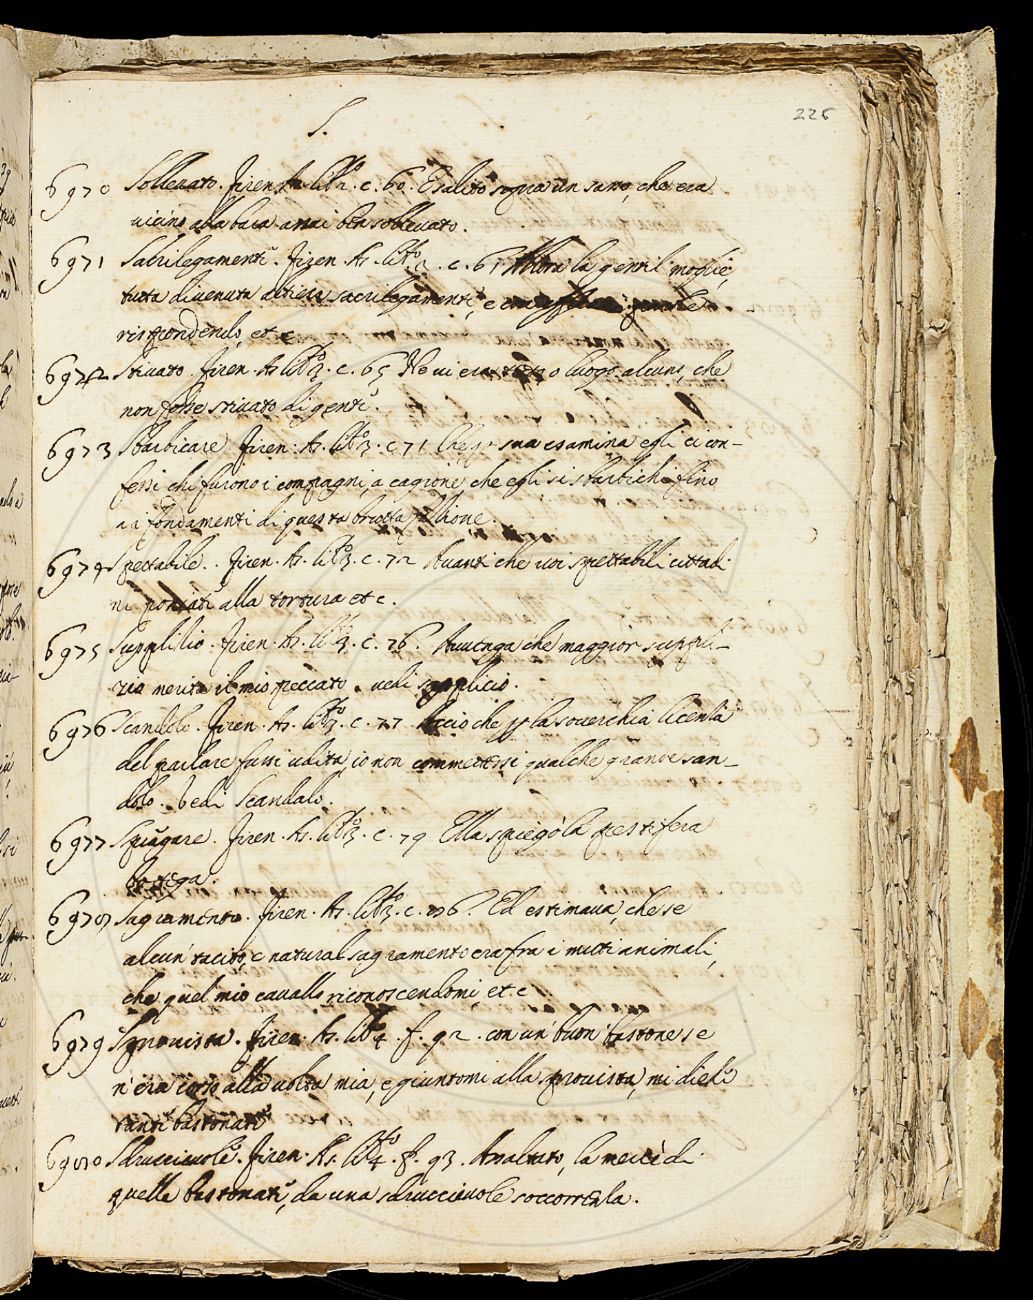 S.
225
6970 Sollevato. Firen. As. lib.º 2. c. 60. E salito sopra un saxo, che era
vicino alla bara assai ben sollevato.
6971 Sacrilegamente. Firen. As. lib.º 2. c. 61 Allora la gentil moglie,
tutta divenuta altiera sacrilegamente, e
rispondendo, et c
6972 Stivato. Firen. As. lib.º 3. c. 65 Ne vi era luogo alcuno, che
non fosse stivato di gente.
6973 Sbarbicare. Firen. As. lib.º 3. c 71 Che sua esamina egli ci con-
fessi chi furono i compagni, a cagione, che egli si sbarbichi fino
a i fondamenti di questa brutta fazione.
6974 Spectabile.. Firen. As. lib.º 3. c. 72 Avanti che voi spettabili cittadi
ni poniate alla tortura et c.
6975 Supplitio. Firen. As. lib.º 3. c. 76. Avvenga che maggior suppli-
zio merita il mio peccato. vedi supplicio.
6976 Scandolo. Firen. As. lib.º 3. c. 77 Accio che p la soverchia licenza
del parlare fussi udita, io non commettessi qualche grande scan-
dolo. Vedi Scandalo.
6977 Spiegare. Firen. As. lib.º 3. c. 79 Ella spiegò la pestifera
botega.
6978 Sagramento. Firen. As. lib.º 3. c. 86. Ed estimava, che se
alcun tacito, e natural sagramento era fra i muti animali,
che quel mio cavallo riconoscendomi et c
6979 Sprovista. Firen. As. lib.º 4. f. 92. con un buon bastone se
n'era corso alla volta mia, e giuntomi alla sprovista, mi diede
tante bastonate
6980 Sdruccievole. Firen. As. lib.º 4. f. 93. Analtato, la mercè di
quelle bastonate, da una sdruccievole soccorrenza.